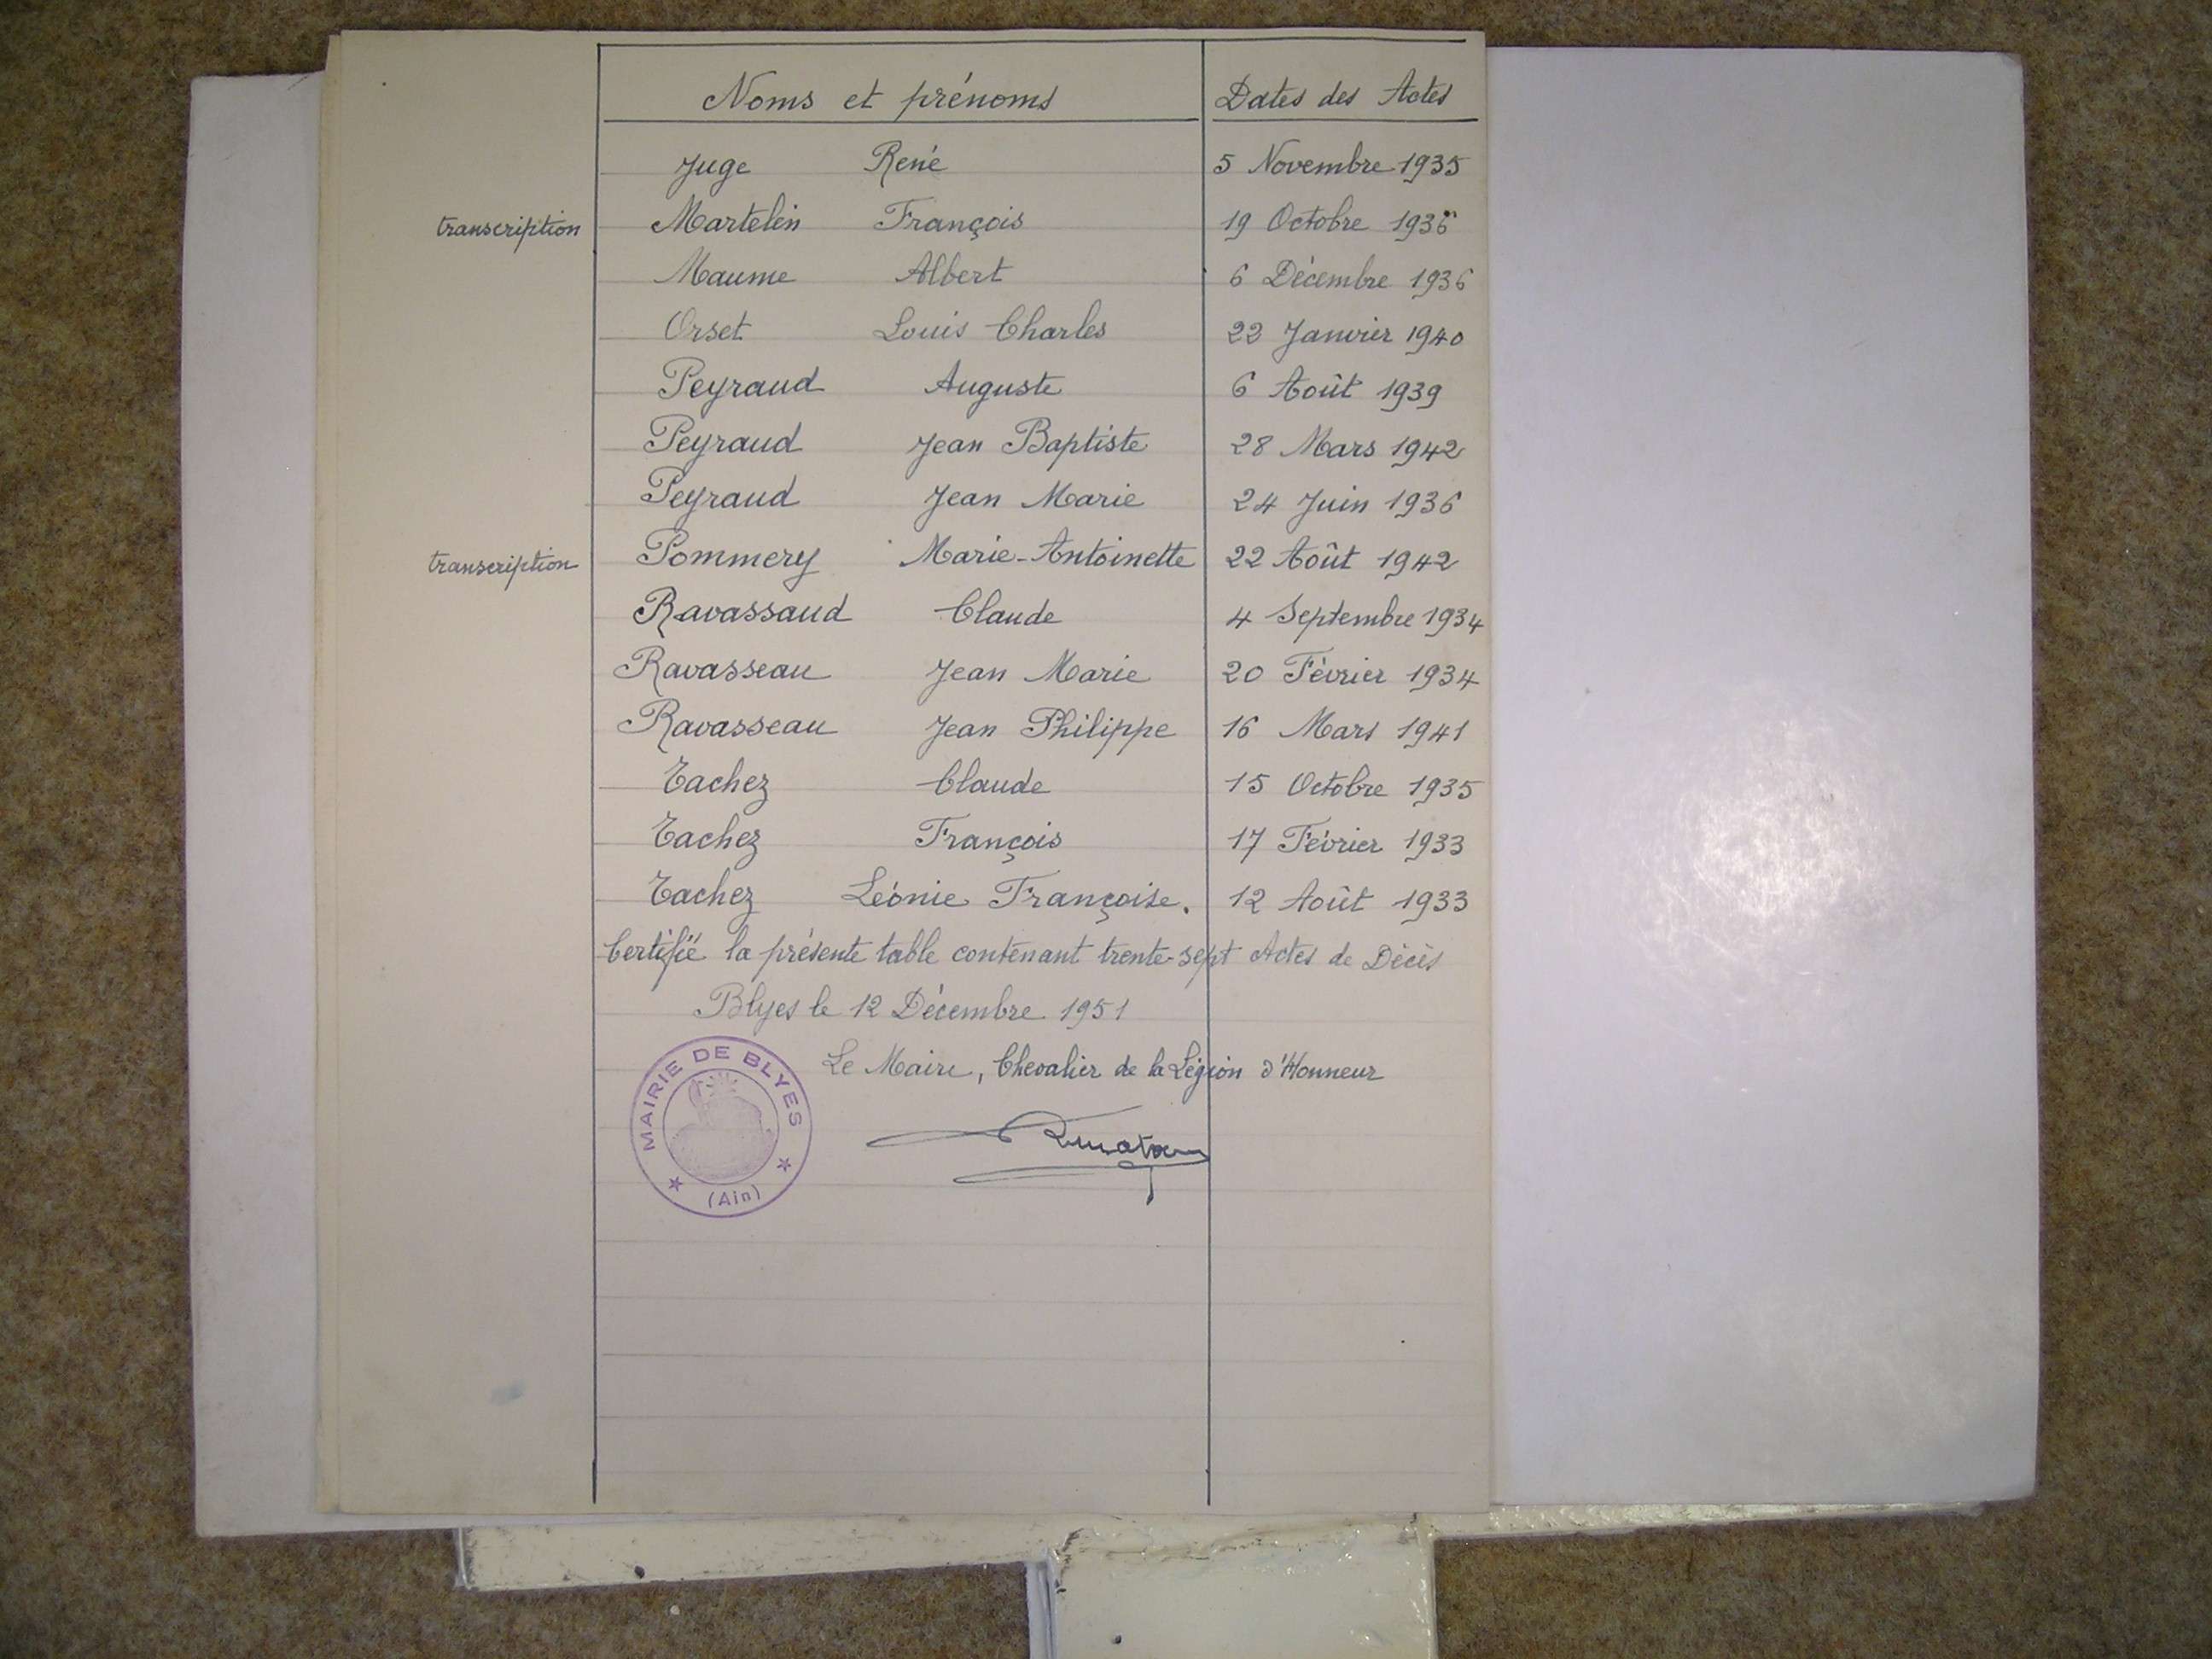 Noms et prénoms Dates des Actes
Juge René 5 Novembre 1935
transcription Martelin François 19 Octobre 1936
Maume Albert 6 Décembre 1936
Orset Louis Charles 22 Janvier 1940
Peyraud Auguste 6 Août 1939
Peyraud Jean Baptiste 28 Mars 1942
Peyraud Jean Marie 24 Juin 1936
transcription Pommery Marie-Antoinette 22 Août 1942
Ravassaud Claude 4 Septembre 1934
Ravasseau Jean Marie 20 Février 1934
Ravasseau Jean Philippe 16 Mars 1941
Tachez Claude 15 Octobre 1935
Tachez François 17 Février 1933
Tachez Léonie Françoise. 12 Août 1933
Certifié la présente table contenant trente-sept Actes de Décès
Blyes le 12 Décembre 1951
Le Maire, Chevalier de la Légion d'Honneur
MAIRIE DE BLYES
(Ain)